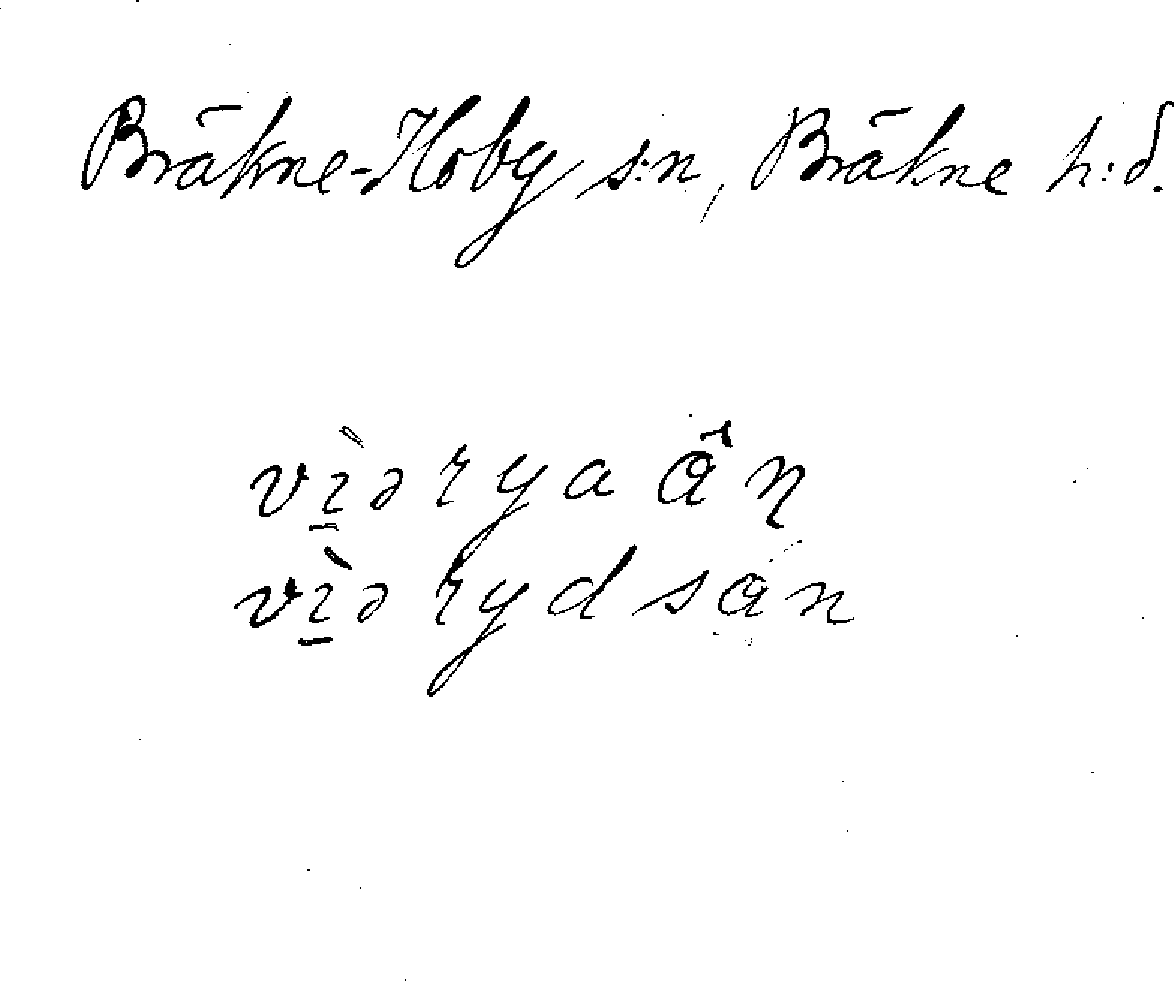 Bräkne-Hoby s:n, Bräkne h:d.
vı̱̀ərya ân
vı̱̀ərydsán